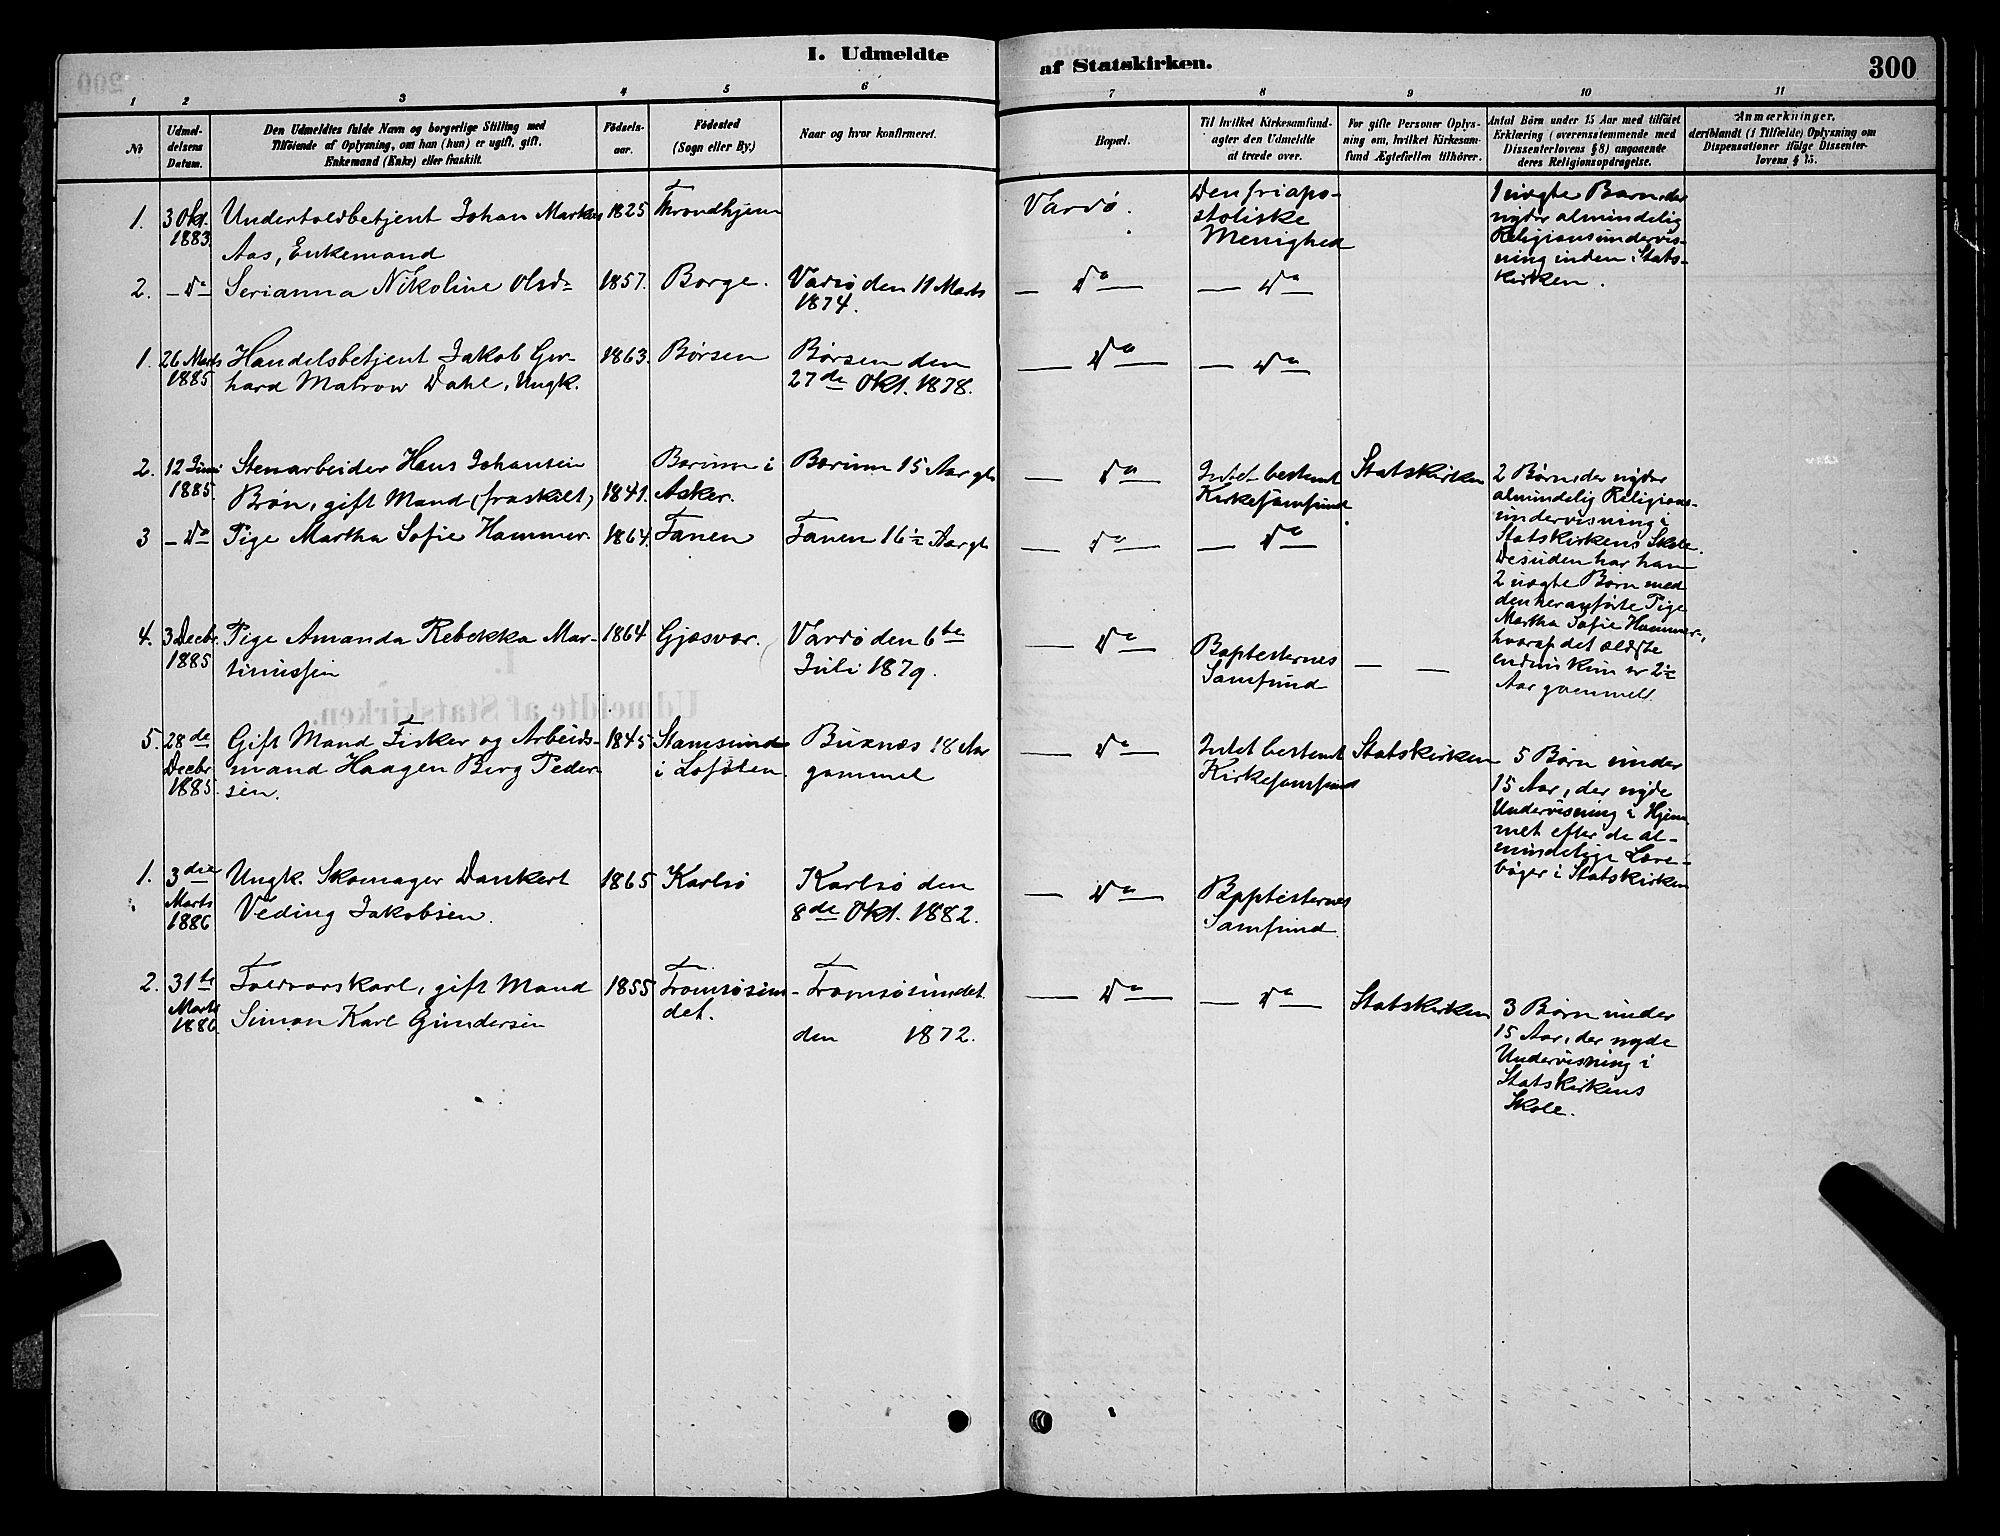 I. Udmeldte af Statskirken.
300
1 2 3 4 5 6 7 8 9 10 11
No
Udmel-
delsens
Datum.
Den Udmeldtes fulde Navn og borgerlige Stilling med
Tilföiende af Oplysning, om han (hun) er ugift, gift,
Enkemand (Enke) eller fraskilt.
Födsels-
aar.
Födested
(Sogn eller By.)
Naar og hvor konfirmeret.
Bopæl.
Til hvilket Kirkesamfund-
agter den Udmeldte
at træde over.
For gifte Personer Oplys-
ning om, hvilket Kirkesam-
fund Ægtefællen tilhörer.
Antal Börn under 15 Aar med tilföiet
Erklæring (overensstemmende med
Dissenterlovens § 8) angaaende
deres Religionsopdragelse.
Anmærkninger,
deriblandt (i Tilfælde) Oplysning om
Dispensationer ifölge Dissenter-
lovens § 15.
1.
3 Okt.
1883.
Undertoldbetjent Johan Markus
Aas, Enkemand
1825
Throndhjem
Vardø.
Den friapo-
stoliske
Menighed
1 uægte Barn, der
nyder almindelig
Religionsundervis-
ning inden Stats-
kirken.
2.
— Do
Serianna Nikoline Olsd.
1857.
Borge.
Vardø den 11 Marts
1874.
— Do —
— Do —
1.
26 Marts
1885
Handelsbetjent Jakob Ger-
hard Matrow Dahl, Ungk.
1863.
Børsen
Børsen den
27de Okt. 1878.
— Do —
— Do —
2.
12 Juni
1885.
Stenarbeider Hans Johansen
Brøn, gift Mand (fraskilt)
1841.
Bærum i
Asker.
Bærum 15 Aar gl.
— Do —
Intet bestemt
Kirkesamfund.
Statskirken
2 Børn, der nyder
almindelig Religions-
undervisning i
Statskirkens Skole.
Desuden har han
2 uægte Børn med
den heranførte Pige
Martha Sofie Hammer,
hvoraf det ældste
endnu kun er 2½
Aar gammell.
3
— Do
Pige Martha Sofie Hammer
1864.
Tanen
Tanen 16½ Aar gl.
— Do —
— Do —
4.
3 Decbr.
1885
Pige Amanda Rebekka Mar-
tinussen
1864
Gjæsvær.
Vardø den 6te
Juli 1879.
— Do —
Baptisternes
Samfund
— —
5.
28de
Decbr
1885.
Gift Mand Fisker og Arbeids-
mand Haagen Berg Peder-
sen.
1845
Stamsund
i Lofoten
Buxnæs 18 Aar
gammel
— Do —
Intet bestemt
Kirkesamfund
Statskirken
5 Børn under
15 Aar, der nyde
Undervisning i Hjem-
met efter de al-
mindelige Lære-
bøger i Statskirken
1.
3die
Marts
1886
Ungk. Skomager Dankert
Veding Jakobsen.
1865
Karlsø
Karlsø den
8de Okt. 1882.
— Do —
Baptisternes
Samfund
2.
31te
Marts
1886
Toldvorskarl, gift Mand
Simon Karl Gundersen
1855
Tromsøsun-
det.
Tromsøsundet
den 1872.
— Do —
— Do —
Statskirken
3 Børn under
15 Aar, der nyde
Undervisning i
Statskirkens
Skole.